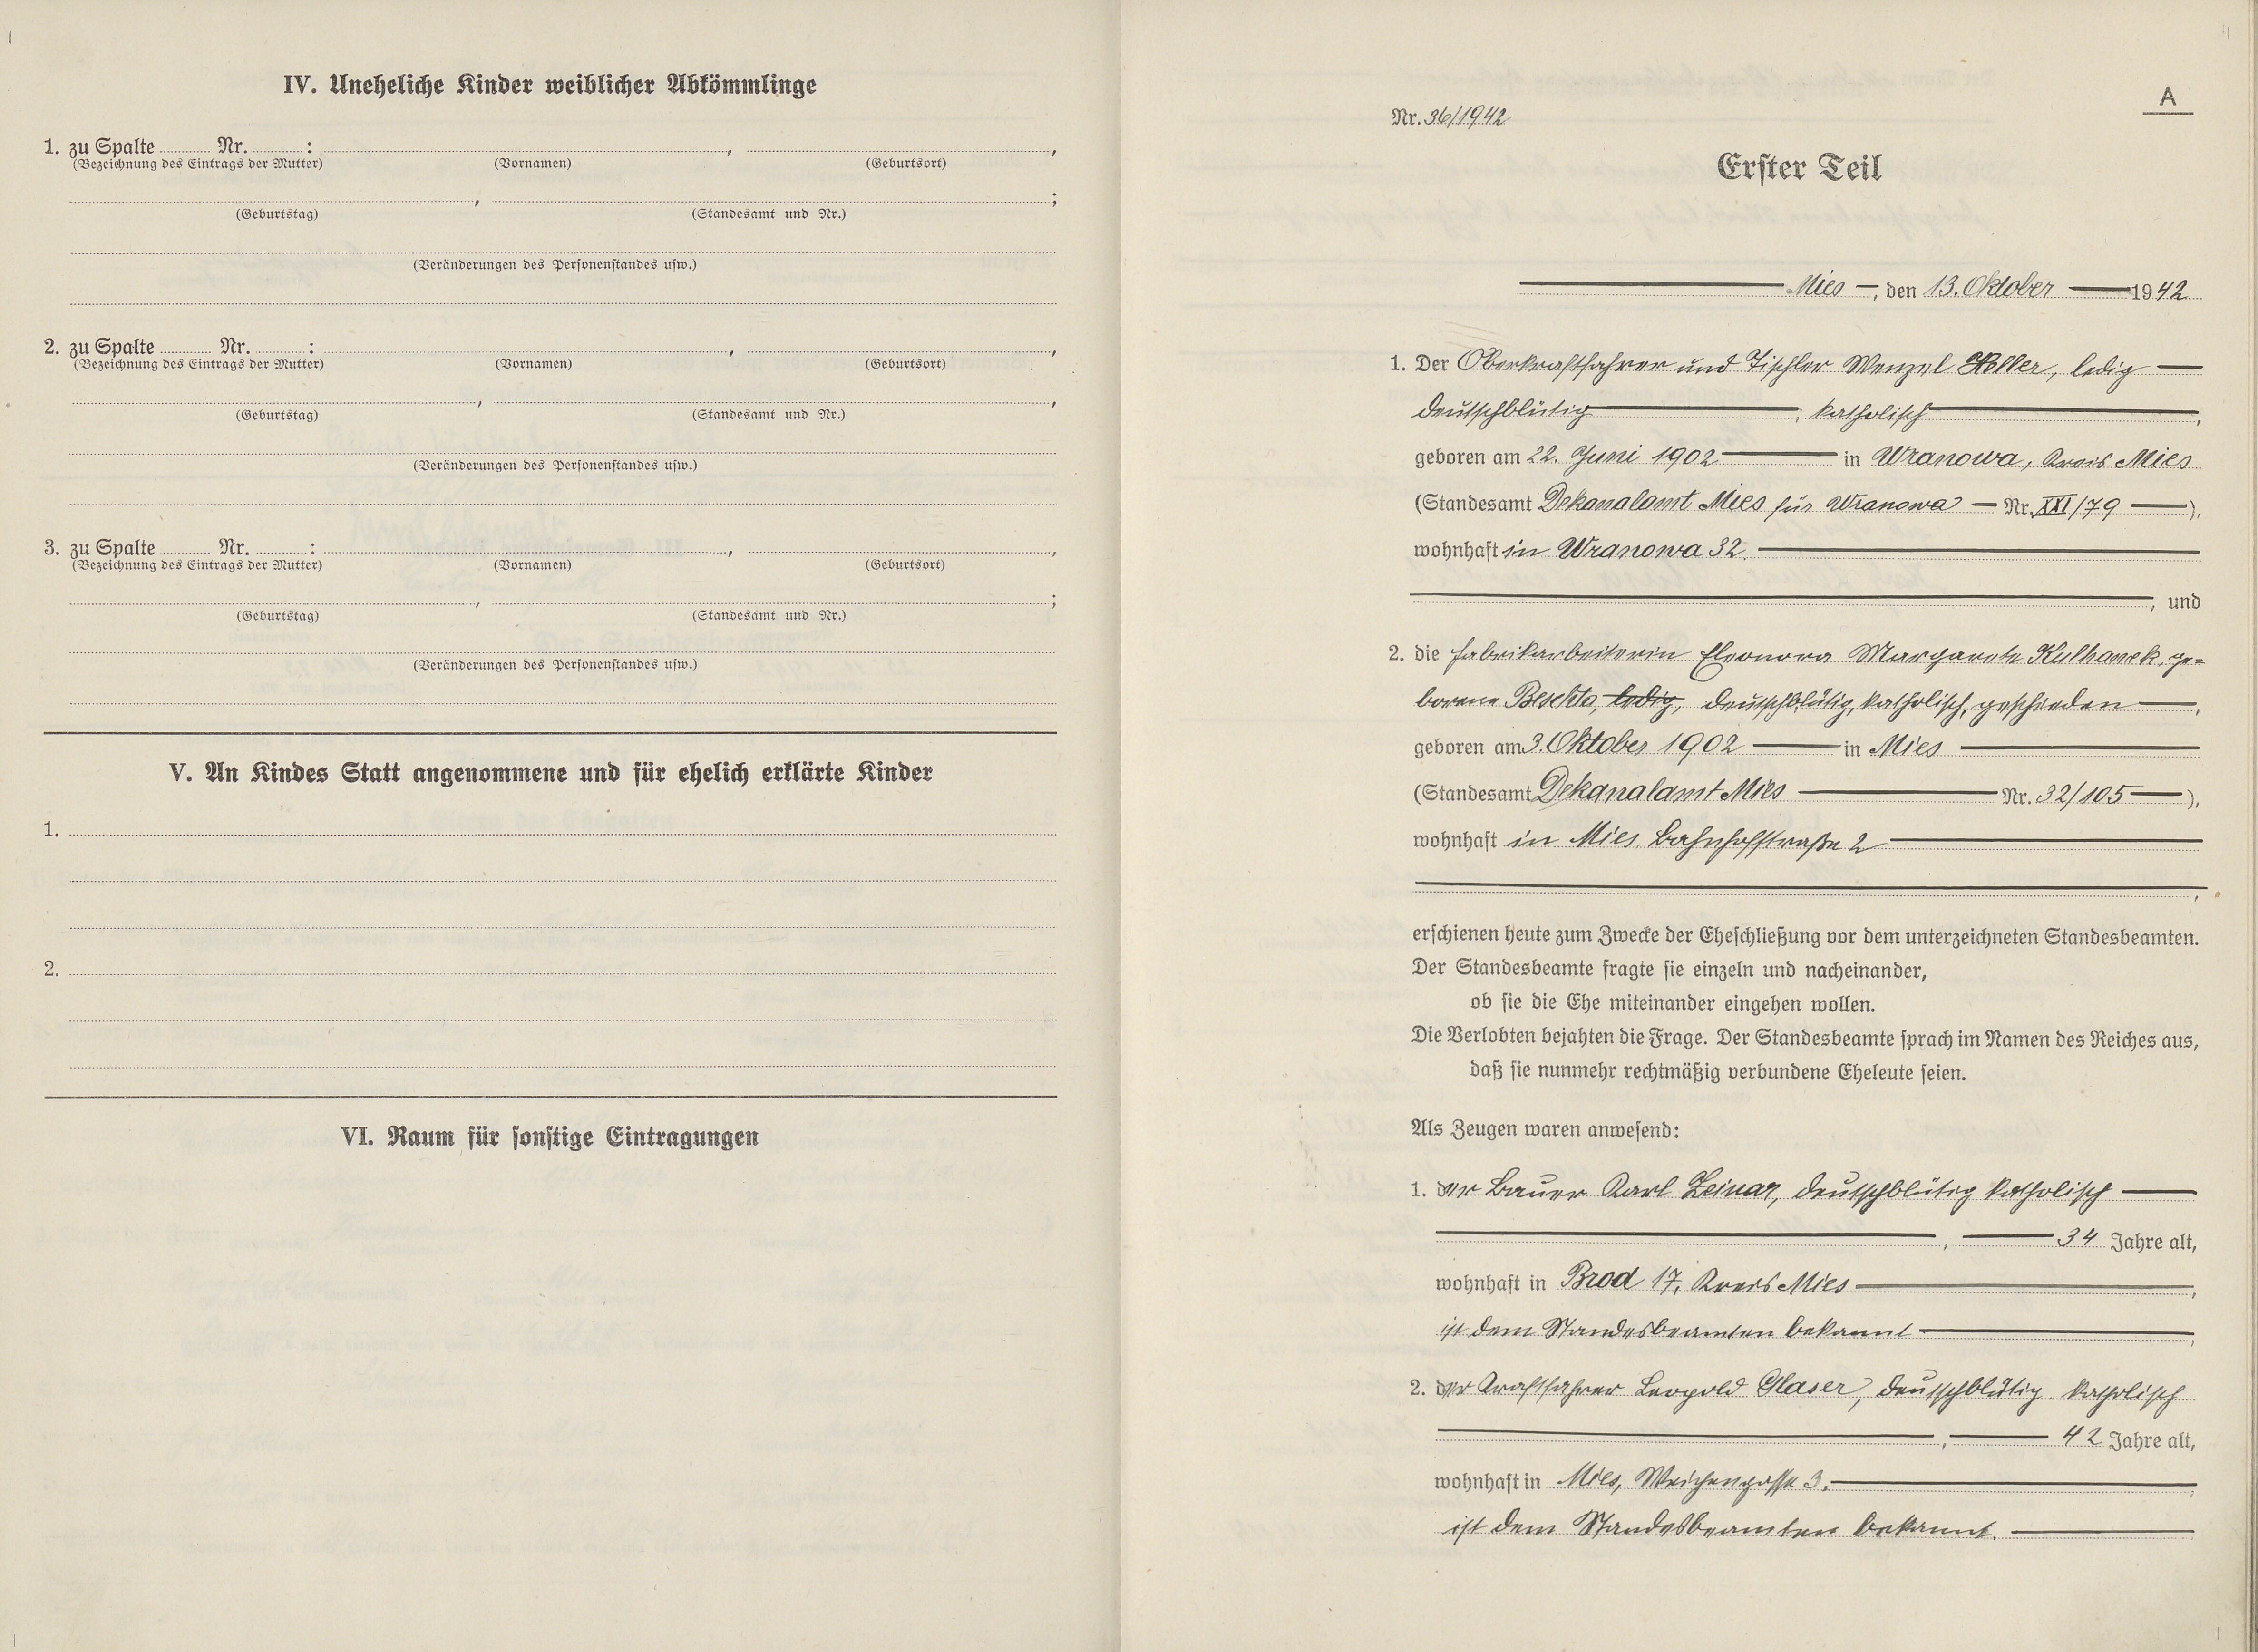 IV. Uneheliche Kinder weiblicher Abkömmlinge
1. zu Spalte Nr. : , ,
(Bezeichnung des Eintrags der Mutter) (Vornamen) (Geburtsort)
, ;
(Geburtstag) (Standesamt und Nr.)
(Veränderungen des Personenstandes usw.)
2. zu Spalte Nr. : , ,
(Bezeichnung des Eintrags der Mutter) (Vornamen) (Geburtsort)
, ,
(Geburtstag) (Standesamt und Nr.)
(Veränderungen des Personenstandes usw.)
3. zu Spalte Nr. : , ,
(Bezeichnung des Eintrags der Mutter) (Vornamen) (Geburtsort)
, ;
(Geburtstag) (Standesamt und Nr.)
(Veränderungen des Personenstandes usw.)
V. An Kindes Statt angenommene und für ehelich erklärte Kinder
1.
2.
VI. Raum für sonstige Eintragungen
A
Nr. 36/1942
Erster Teil
Mies –, den 13. Oktober 1942
1. Der Oberkraftfahrer und Tischler Wenzel Heller, ledig
deutschblütig, katholisch,
geboren am 22. Juni 1902 in Wranowa, Kreis Mies
(Standesamt Dekanalamt Mies für Wranowa Nr. XXI/79 ),
wohnhaft in Wranowa 32.
, und
2. die Fabrikarbeiterin Eleonora Margarete Kulhanek, ge-
borene ledig, deutschblütig, katholisch, geschieden,
geboren am 3. Oktober 1902 in Mies
(Standesamt Dekanalamt Mies Nr. 32/105 ),
wohnhaft in Mies, Bahnhofstraße 2
,
erschienen heute zum Zwecke der Eheschließung vor dem unterzeichneten Standesbeamten.
Der Standesbeamte fragte sie einzeln und nacheinander,
ob sie die Ehe miteinander eingehen wollen.
Die Verlobten bejahten die Frage. Der Standesbeamte sprach im Namen des Reiches aus,
daß sie nunmehr rechtmäßig verbundene Eheleute seien.
Als Zeugen waren anwesend:
1. der Bauer Karl Leinar, deutschblütig katholisch
, 34 Jahre alt,
wohnhaft in Brod 17, Kreis Mies,
ist dem Standesbeamten bekannt,
2. der Kraftfahrer Leopold Glaser, deutschblütig katholisch
, 42 Jahre alt,
wohnhaft in Mies, Weichengasse 3.,
ist dem Standesbeamten bekannt.